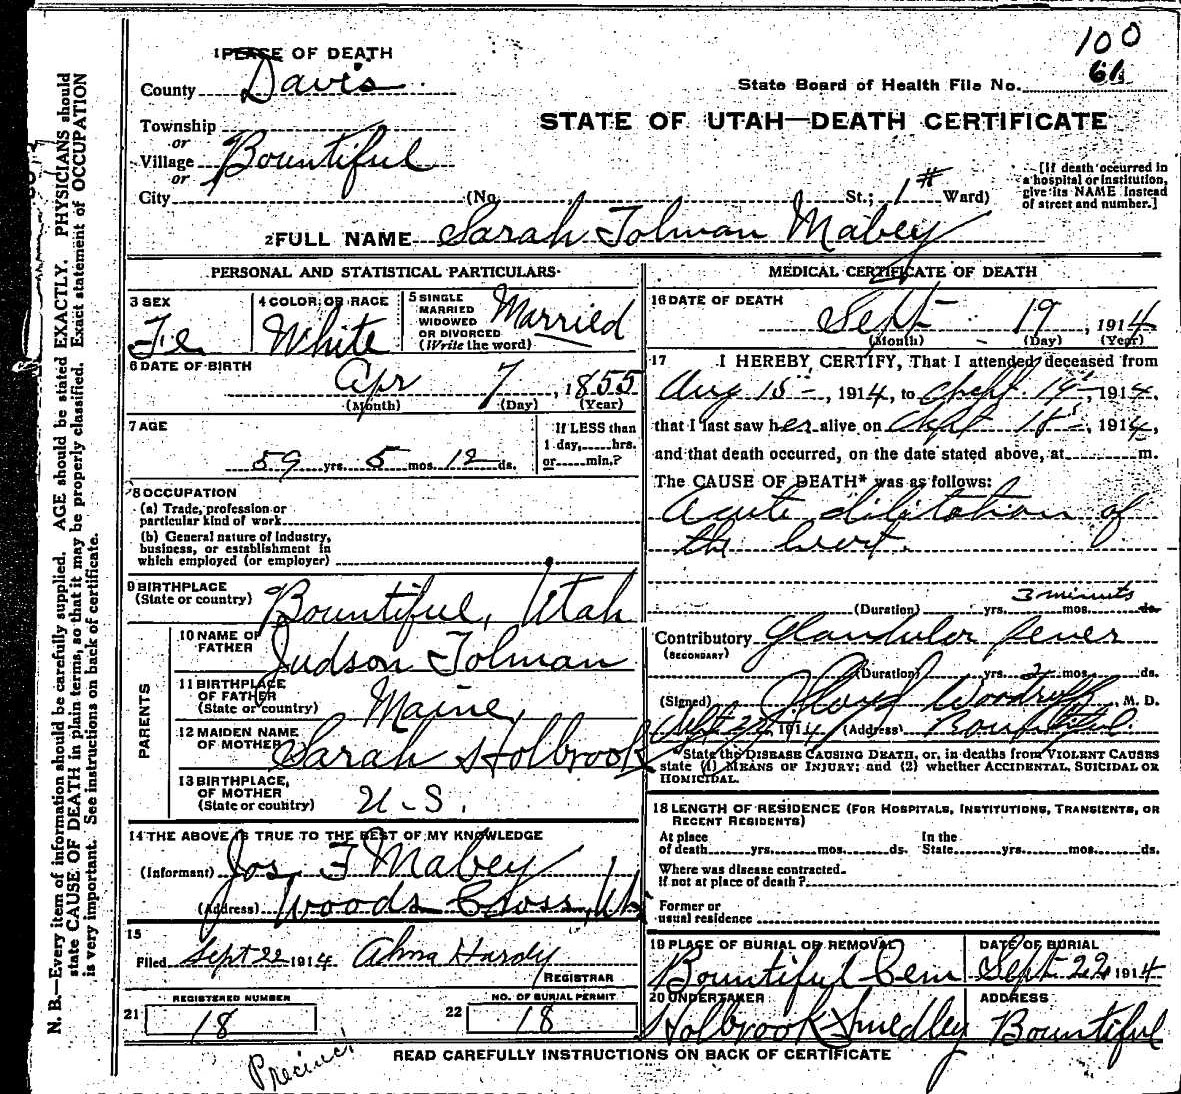 100
1 PLACE OF DEATH
61
County Davis
State Board of Health File No.
STATE OF UTAH—DEATH CERTIFICATE
Township
or
Village Bountiful
or
City (No. St.; 1st Ward)
[If death occurred in
a hospital or institution,
give its NAME instead
of street and number.]
2 FULL NAME Sarah Tolman Mabey
PERSONAL AND STATISTICAL PARTICULARS
3 SEX
Fe
4 COLOR OR RACE
White
5 SINGLE
MARRIED
WIDOWED
OR DIVORCED
(Write the word)
Married
6 DATE OF BIRTH
Apr 7, 1855
(Month) (Day) (Year)
7 AGE
59 yrs. 5 mos. 12 ds.
If LESS than
1 day, hrs.
or min.?
8 OCCUPATION
(a) Trade, profession or
particular kind of work
(b) General nature of industry,
business, or establishment in
which employed (or employer)
9 BIRTHPLACE
(State or country)
Bountiful, Utah
PARENTS
10 NAME OF
FATHER
Judson Tolman
11 BIRTHPLACE
OF FATHER
(State or country)
Maine
12 MAIDEN NAME
OF MOTHER
Sarah Holbrook
13 BIRTHPLACE,
OF MOTHER
(State or country)
U.S.
14 THE ABOVE IS TRUE TO THE BEST OF MY KNOWLEDGE
(Informant) Jos. T Mabey
(Address) Woods Cross, Ut
15
Filed Sept 22 1914 Alma Hardy
REGISTRAR
REGISTERED NUMBER
21 18
NO. OF BURIAL PERMIT
22 18
MEDICAL CERTIFICATE OF DEATH
16 DATE OF DEATH
Sept 19, 1914
(Month) (Day) (Year)
17 I HEREBY CERTIFY, That I attended deceased from
Aug 15, 1914, to Sept. 19, 1914,
that I last saw her alive on Sept 18, 1914,
and that death occurred, on the date stated above, at m.
The CAUSE OF DEATH* was as follows:
Acute dilitation of
the heart.
3 minuts
(Duration) yrs. mos. ds.
Contributory Glandular fever
(SECONDARY)
(Duration) yrs. 2 mos. ds.
(Signed) Woodruff, M. D.
Sept 22, 1914 (Address) Bountiful.
State the DISEASE CAUSING DEATH, or, in deaths from VIOLENT CAUSES
state (1) MEANS OF INJURY; and (2) whether ACCIDENTAL, SUICIDAL OR
HOMICIDAL.
18 LENGTH OF RESIDENCE (FOR HOSPITALS, INSTITUTIONS, TRANSIENTS, OR
RECENT RESIDENTS)
At place
of death yrs. mos. ds.
In the
State yrs. mos. ds.
Where was disease contracted,
if not at place of death?
Former or
usual residence
19 PLACE OF BURIAL OR REMOVAL
Bountiful Cem
DATE OF BURIAL
Sept 22 1914
20 UNDERTAKER
Holbrook Smedley
ADDRESS
Bountiful
READ CAREFULLY INSTRUCTIONS ON BACK OF CERTIFICATE
Precinct
N. B.—Every item of information should be carefully supplied. AGE should be stated EXACTLY. PHYSICIANS should
state CAUSE OF DEATH in plain terms, so that it may be properly classified. Exact statement of OCCUPATION
is very important. See instructions on back of certificate.